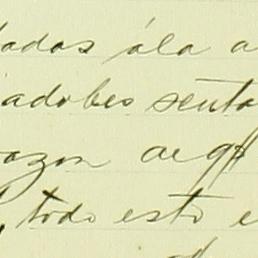 dadas ála a
adobes senta
razon a
todo esto e